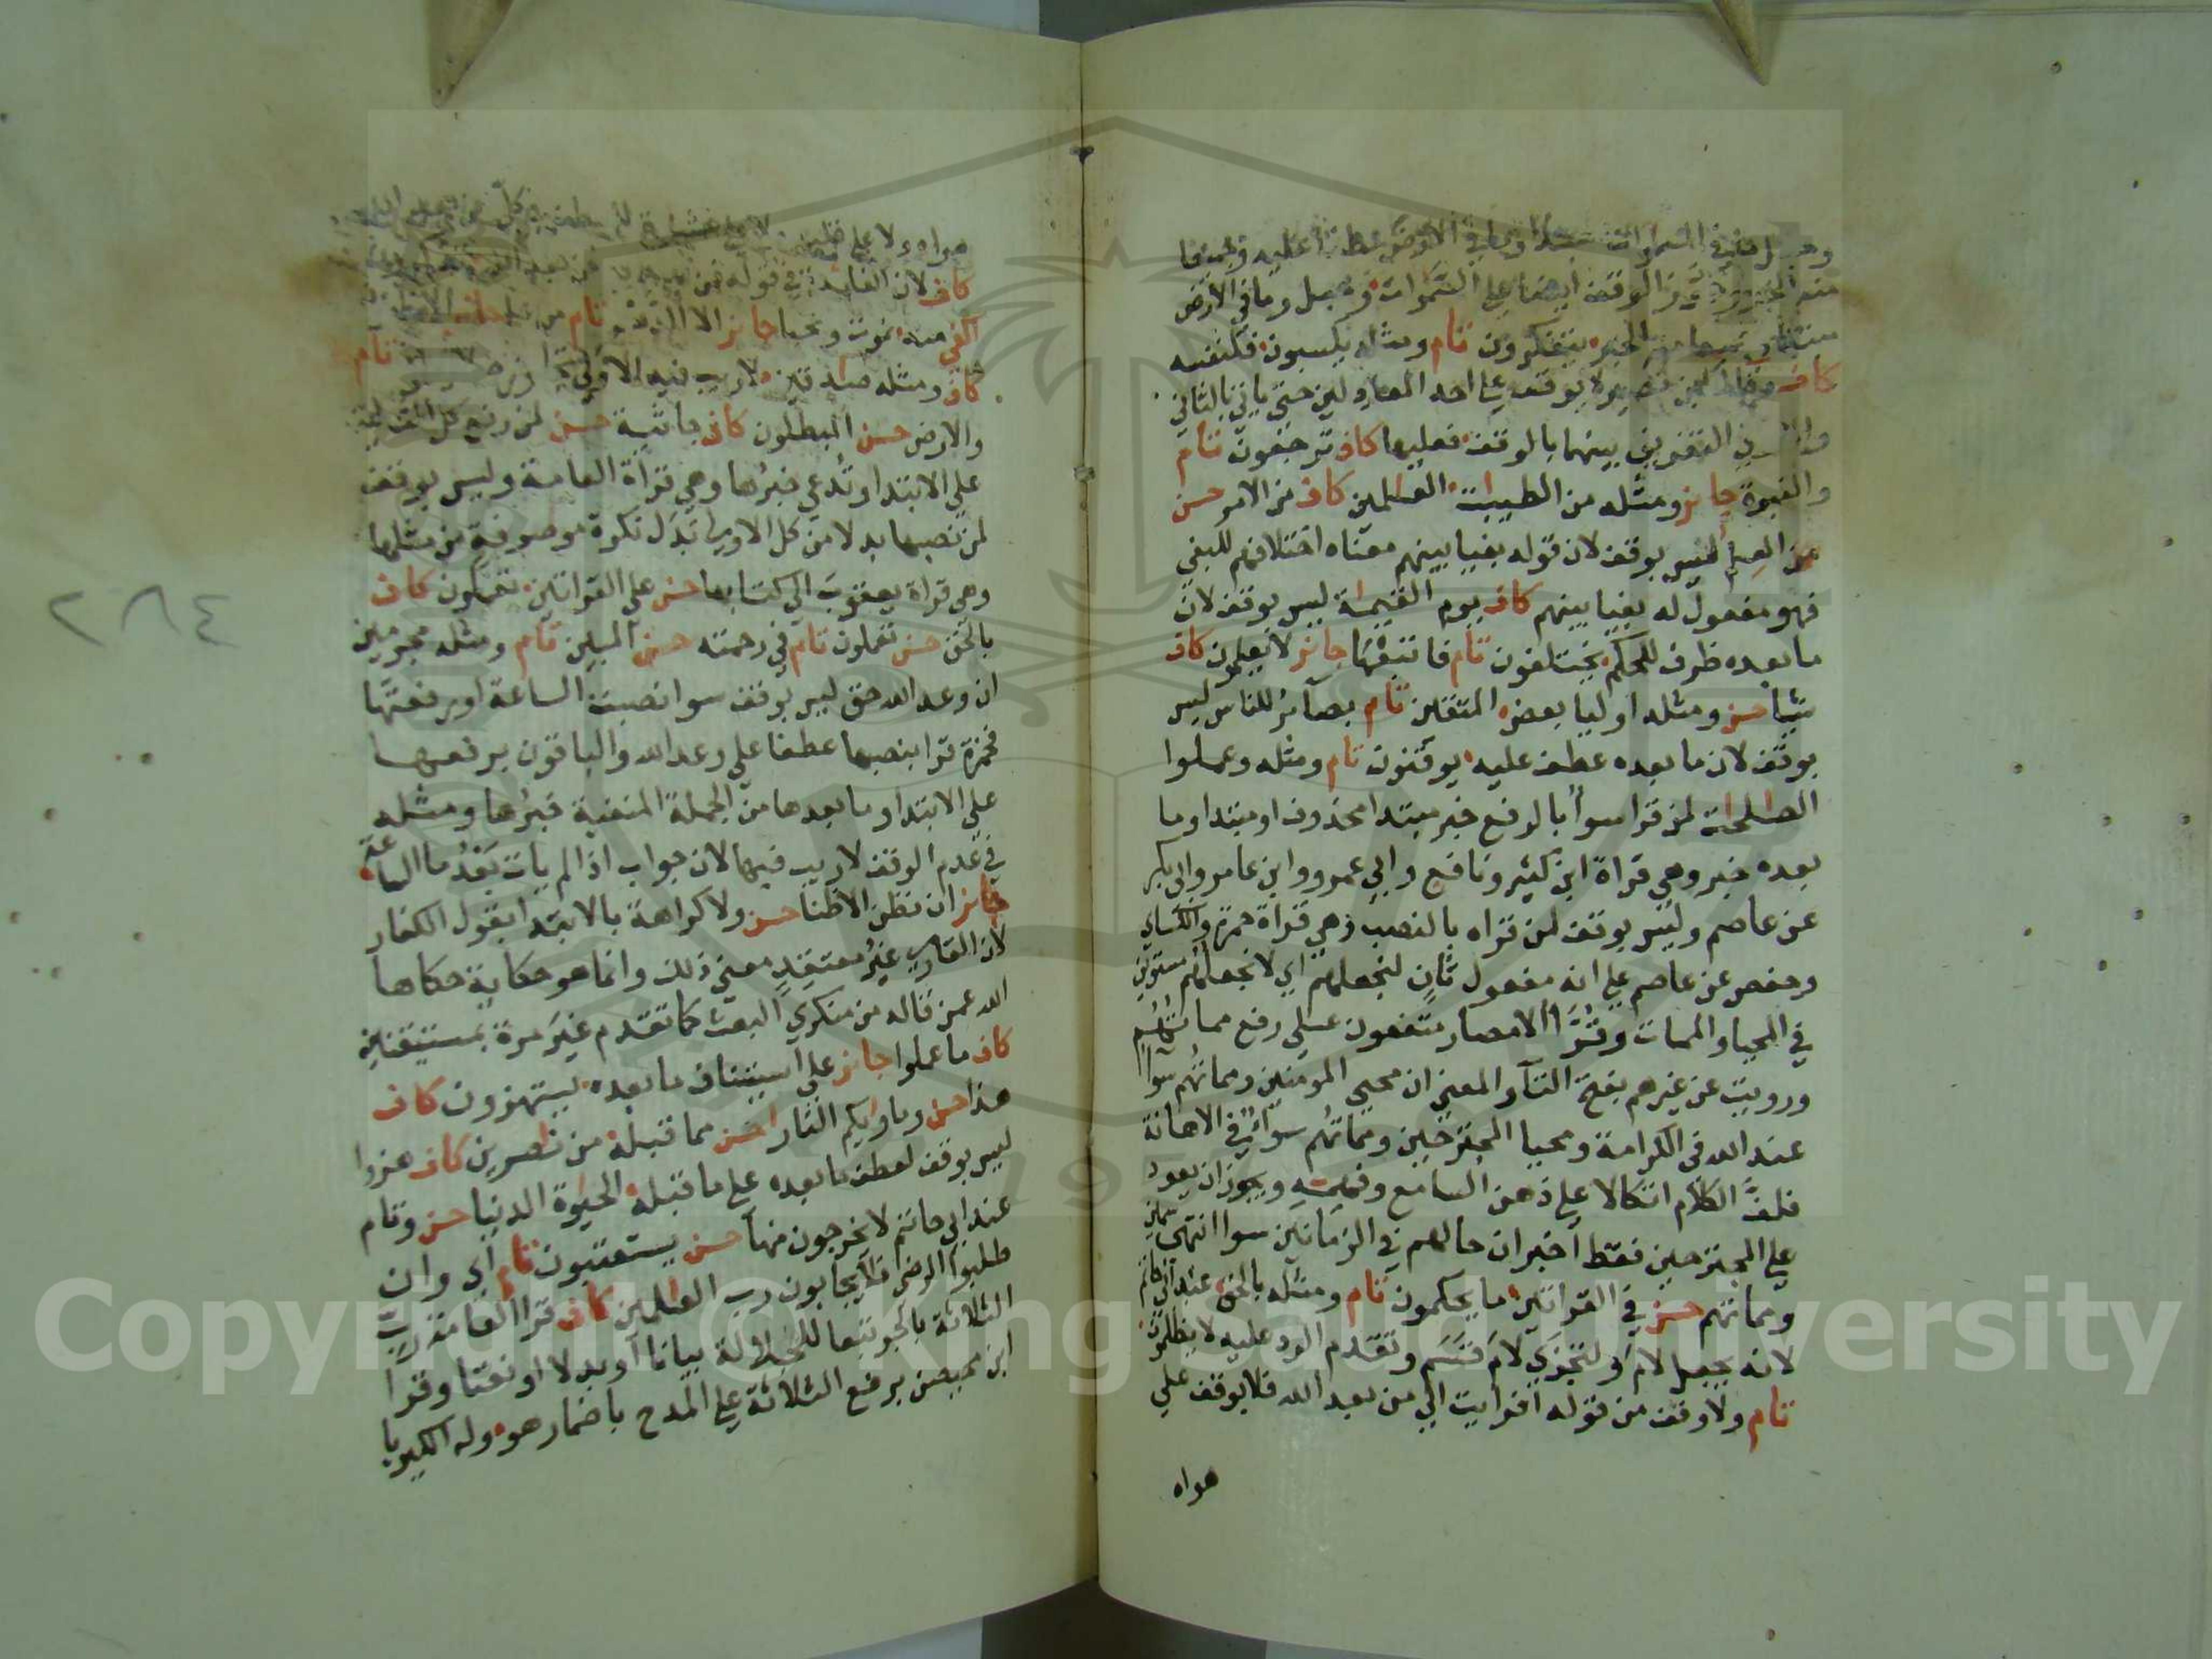 وجعل ما في السموات مبتدا وما في الارض عطفا عليه وجميعا
منه الخبر وجوز الوقف ايضا على السموات وجعل وما في الارض
مبتدا وجميعا منه الخبر يتفكرون تام ومثله يكسبون فلنفسه
كاف وقال ابن نصير لا يوقف على احد المعادلين حتى ياتي بالثاني
والتفريق بينهما بالوقف فعليها كاف ترجعون تام
والنبوة جايز ومثله من الطيبات العلمين كاف من الامر حسن
من العلم ليس بوقف لان قوله بغيا بينهم معناه اختلافهم للبغي
فهو مفعول له بغيا بينهم كاف يوم القيمة ليس بوقف لان
ما بعده ظرف للحكم يختلفون تام فاتبعها جايز لا يعلمون كاف
شيا حسن ومثله اوليا بعض المتقين تام بصآئر للناس ليس
بوقف لان ما بعده عطف عليه يوقنون تام ومثله وعملوا
الصلحت لمن قرا سوأ بالرفع خبر مبتدا محذوف او مبتدا وما
بعده خبر وهي قراة ابن كثير ونافع وابي عمرو وابن عامر وابي بكر
عن عاصم وليس بوقف لمن قراه بالنصب وهي قراة حمزة والكساي
وحفص عن عاصم على انه مفعول ثان لنجعلهم اي لا نجعلهم مستوين
في المحيا والممات وقرّا الامصار متفقون على رفع مماتهم
ورويت عن غيرهم بفتح التآ والمعنى ان محيى المومنين ومماتهم سوآ
عند الله في الكرامة ومحيا المجترحين ومماتهم سوآء في الاهانة
فلفّ الكلام اتكالا على ذهن السامع وفهمه ويجوز ان يعود
على المجترحين فقط اخبر ان حالهم في الزمانين سوا انتهى سمين
ومماتهم حسن في القراتين ما يحكمون تام ومثله بالحق عند ابي حاتم
لانه يجعل لام ولتجزي لام قسم وتقدم الرد عليه لا يظلمون
تام ولا وقف من قوله افرايت الى من بعد الله فلا يوقف على
هواه
هواه ولا على
كاف لان الفايدة في قوله فمن يهديه من بعد الله
الفي منه نموت ونحيا جايز الا الدهر تام من علم جايز
كاف ومثله صادقين لا ريب فيه الاولى تام
والارض حسن المبطلون كاف جاثية حسن لمن رفع كل الثانية
على الابتدا وتدعى خبرها وهي قراة العامة وليس بوقف
لمن نصبها بدلا من كل الاولى بدل نكرة موصوفة من مثلها
وهي قراة يعقوب الى كتابها حسن على القراتين تعملون كاف
بالحق حسن تعملون تام في رحمته حسن المبين تام ومثله مجرمين
ان وعد الله حق ليس بوقف سوا نصبت الساعة او رفعتها
فحمزة قرا بنصبها عطفا على وعد الله والباقون برفعها
على الابتدا وما بعدها من الجملة المنفية خبرها ومثله
في عدم الوقف لا ريب فيها لان جواب اذا لم يات بَعْدُ ما الساعة
جايز ان نظن الا ظنا حسن ولا كراهة بالابتدا بقول الكفار
لان القاري غيرُ معتقدٍ معنى ذلك وانما هو حكاية حكاها
الله عمن قاله من منكري البعث كما تقدم غيرَ مرة بمستيقنين
كاف ما عملوا جايز على استيناف ما بعده يستهزون كاف
هذا حسن وماوايكم النار احسن مما قبله من نصرين كاف هزوا
ليس بوقف لعطف ما بعده على ما قبله الحيوة الدنيا حسن وتام
عند ابي حاتم لا يخرجون منها حسن يستعتبون تام اي وان
طلبوا الرضا فلا يجابون رب العلمين كاف قرا العامة ربّ
الثلاثة بالجر تبعا للجلالة بيانا او بدلا او نعتا وقرا
ابن محيصن برفع الثلاثة على المدح باضمار هو وله الكبريا
٢٨٤
Copyright © King Saud University